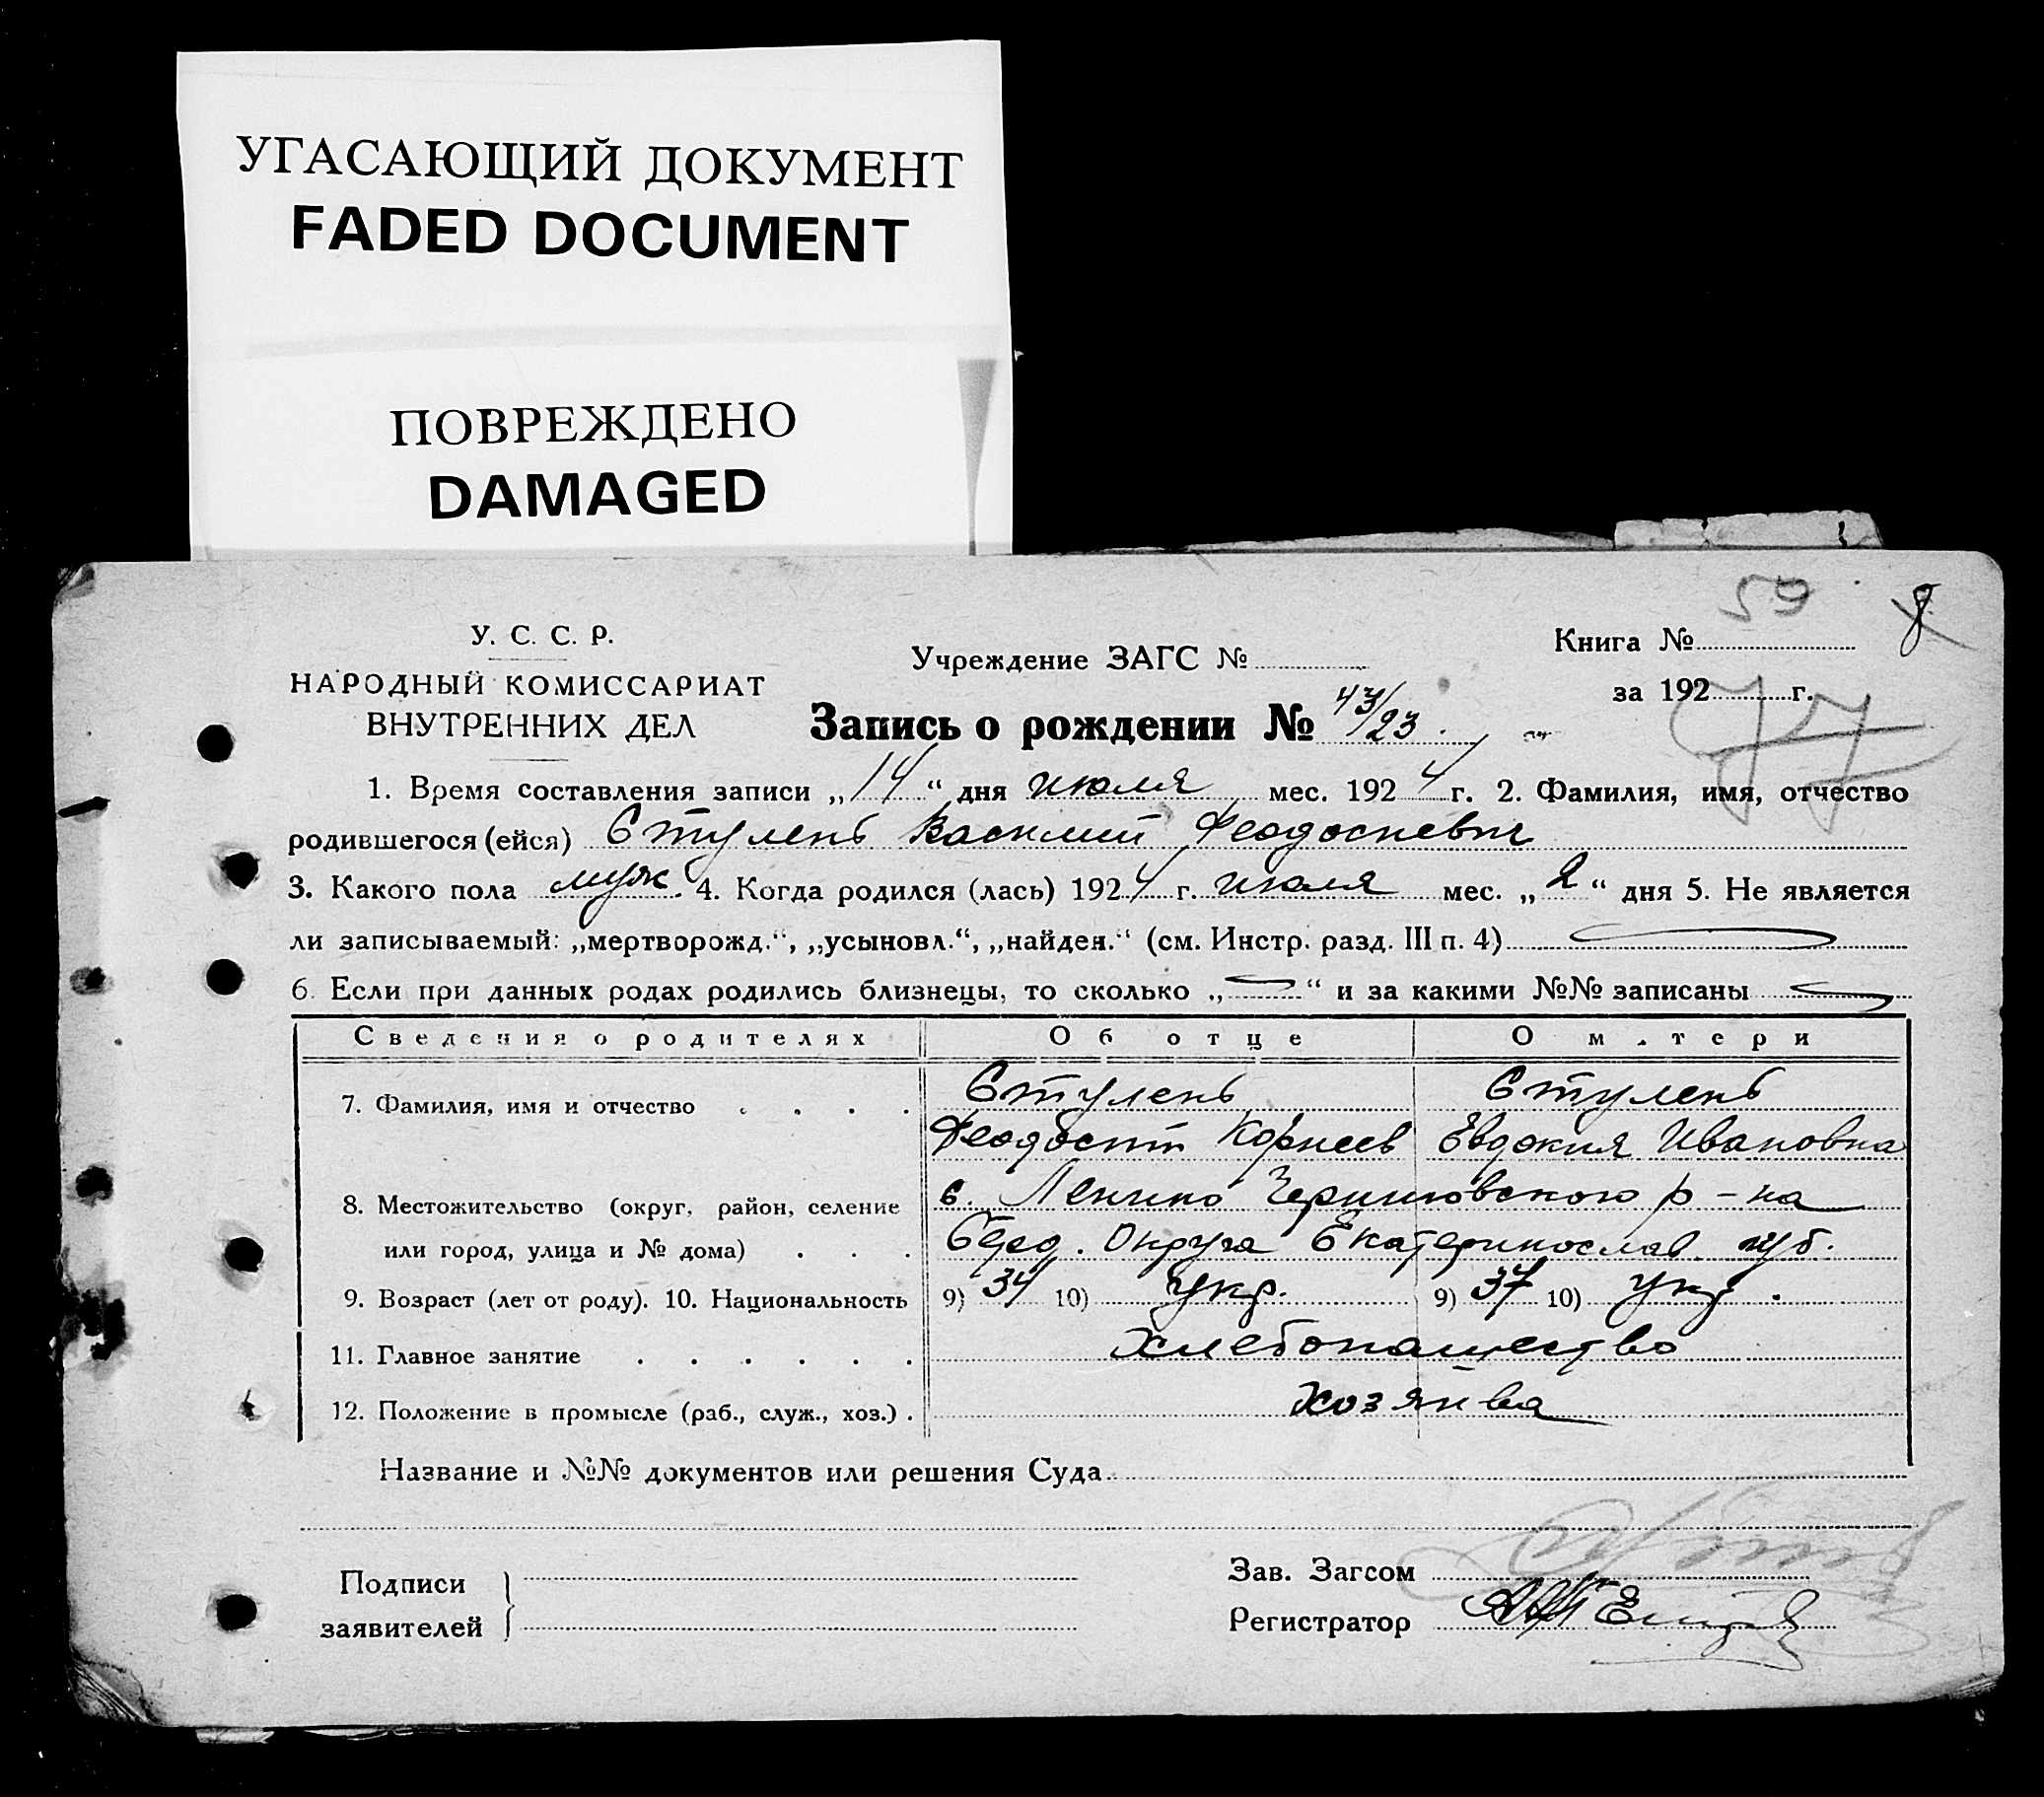 УГАСАЮЩИЙ ДОКУМЕНТ
FADED DOCUMENT
ПОВРЕЖДЕНО
DAMAGED
59 8
У. С. С. Р.
НАРОДНЫЙ КОМИССАРИАТ
ВНУТРЕННИХ ДЕЛ
Учреждение ЗАГС №
Книга №
за 192 г.
77
Запись о рождении № 43/23
1. Время составления записи „14“ дня июля мес. 1924 г. 2. Фамилия, имя, отчество
родившегося (ейся) Стулень Василий Феодосиевич
3. Какого пола муж. 4. Когда родился (лась) 1924 г. июля мес. „2“ дня 5. Не является
ли записываемый: „мертворожд.“, „усыновл.“, „найден.“ (см. Инстр. разд. III п. 4)
6. Если при данных родах родились близнецы, то сколько „—“ и за какими №№ записаны —
Сведения о родителях Об отце О м.тери
7. Фамилия, имя и отчество . . . . Стулень Стулень
Феодосий Корнеев Евдокия Ивановна
8. Местожительство (округ, район, селение с. Ленино Черниговского р-на
или город, улица и № дома) . . . Берд. Округа Екатеринослав. губ.
9. Возраст (лет от роду). 10. Национальность 9) 34 10) укр. 9) 37 10) укр.
11. Главное занятие . . . . . . Хлебопашество
12. Положение в промысле (раб., служ., хоз.) . хозяива
Название и №№ документов или решения Суда
Подписи
заявителей
Зав. Загсом
Регистратор